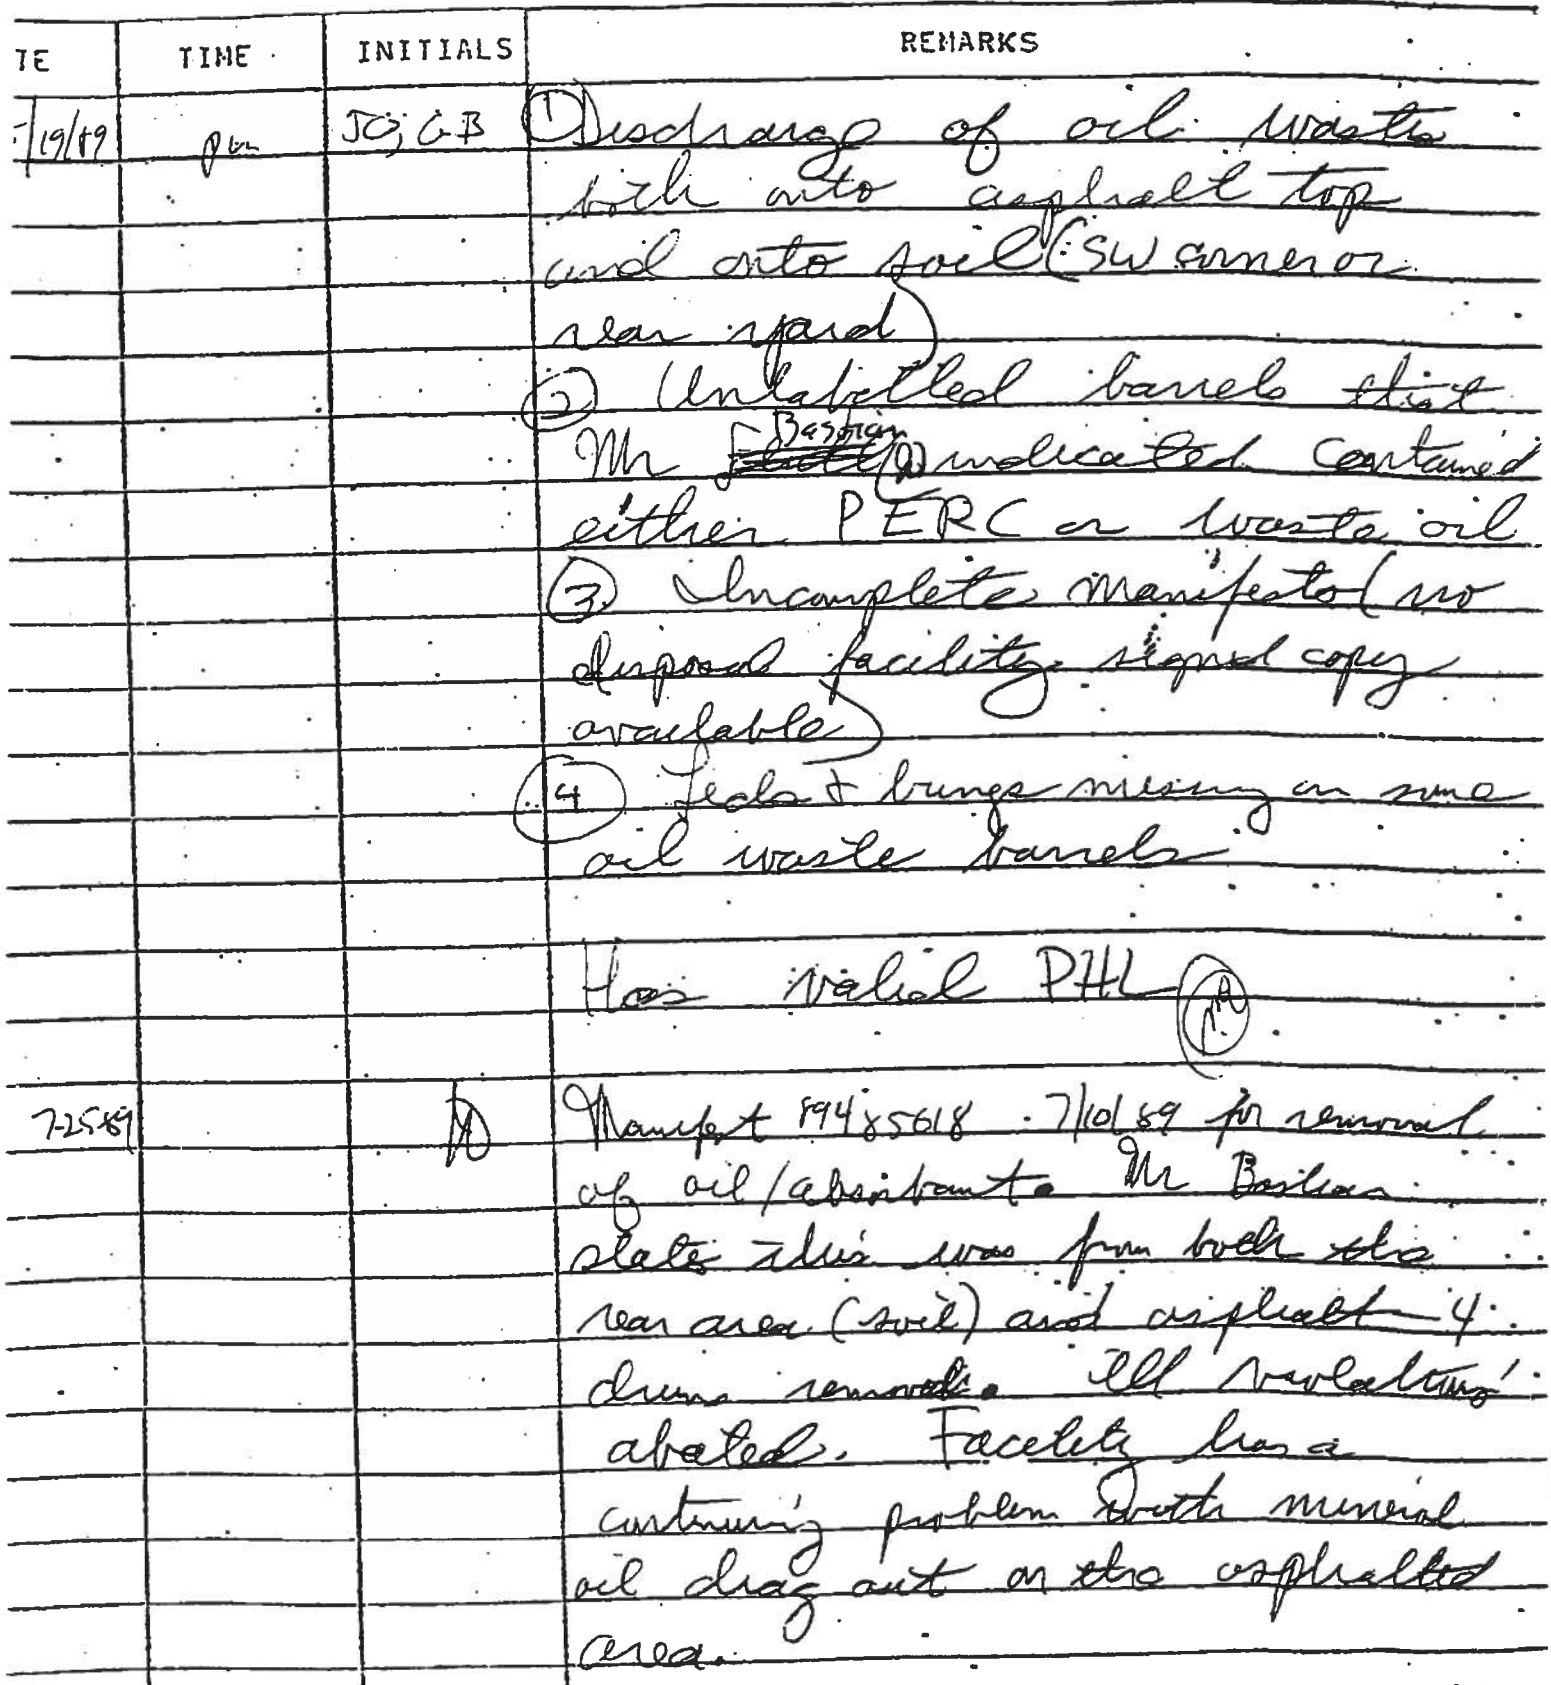 TE TIME INITIALS REMARKS
/19/89 pm JO; GB ① Discharge of oil wastes
both onto asphalt top
and onto soil (SW corner or
rear yard)
② Unlabelled barrels that
Mr Bastian indicated contained
either PERC or waste oil
③ Incomplete manifests (no
disposal facility signed copy
available)
④ Leaks & bungs missing on some
oil waste barrels
Has valid PHL
7-25-89 Manifest 89485618 7/10/89 for removal
of oil/absorbant. Mr Bastian
states this was from both the
rear area (soil) and asphalt 4
drums removed. All violations
abated. Facility has a
continuing problem with mineral
oil drag out on the asphalted
area.